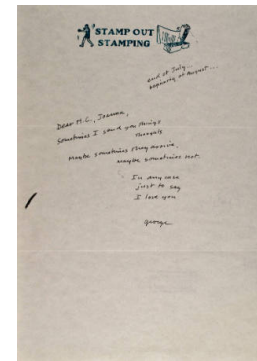 STAMP OUT
STAMPING
end of July...
beginning of August...
Dear M.C., Joanna,
Sometimes I send you things
Maybe sometimes they arrive,
maybe sometimes not.
In any case
just to say
I love you
george